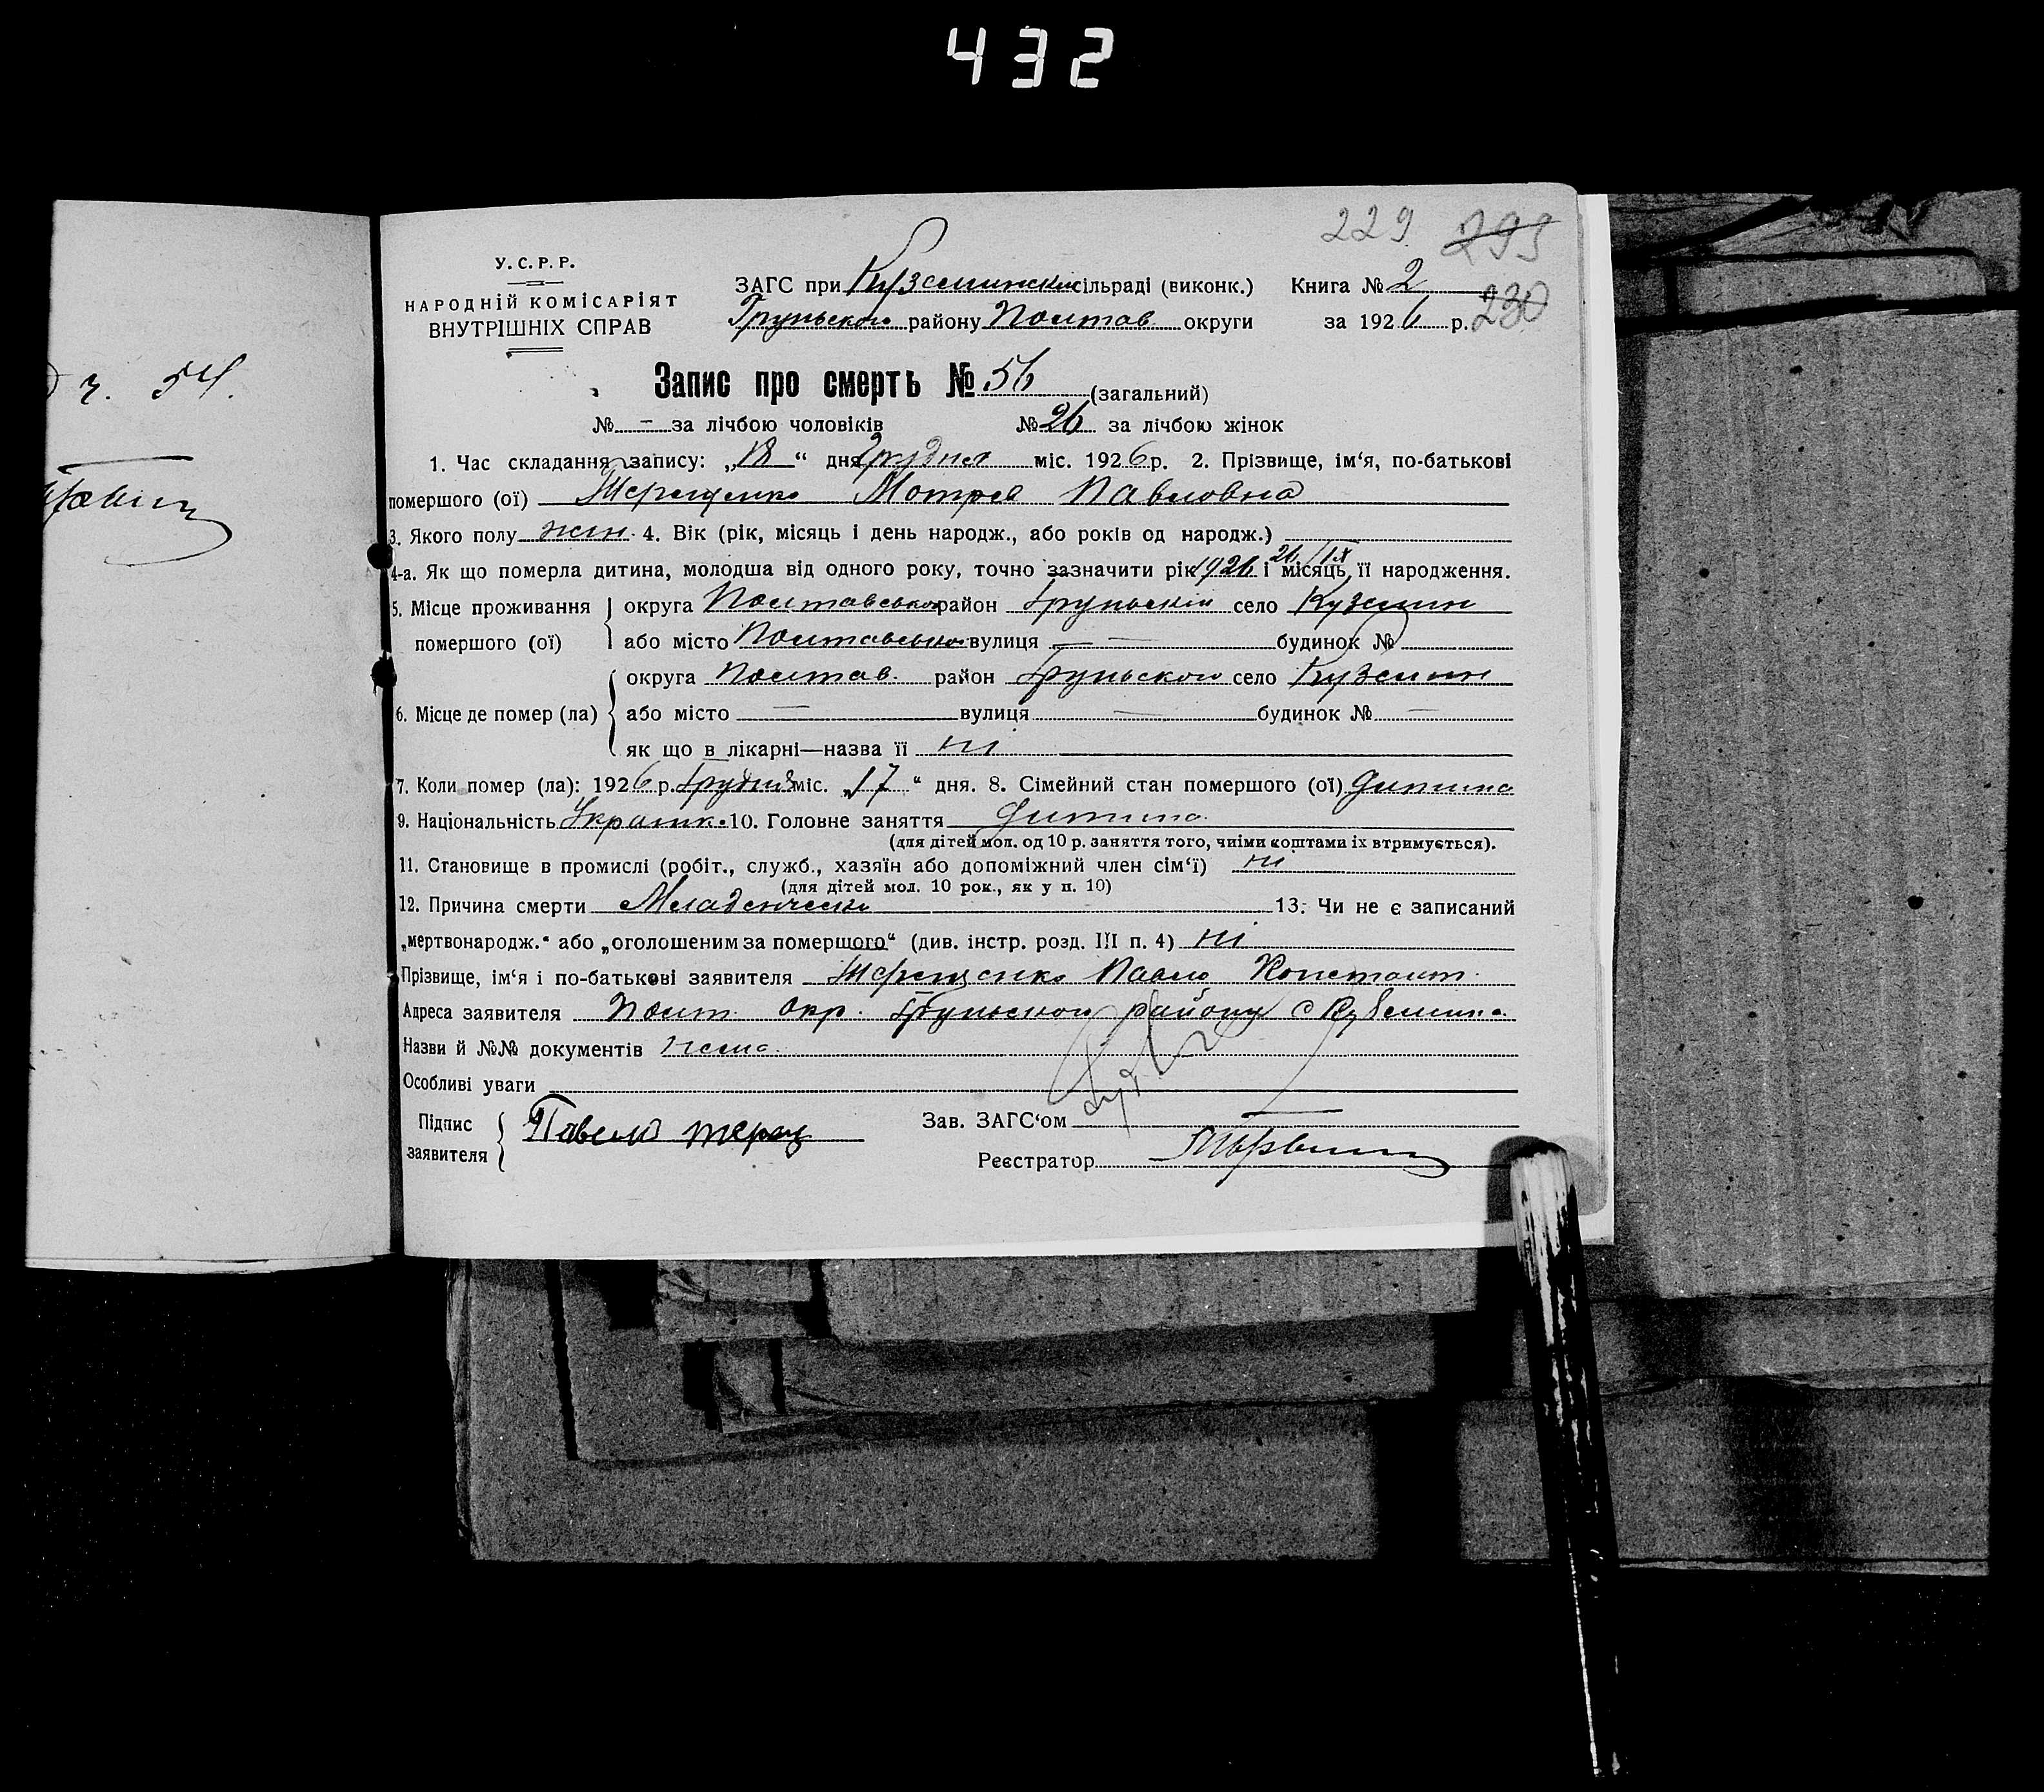 432
229 299
230
ч. 54.
У. С. Р. Р.
НАРОДНІЙ КОМІСАРІЯТ
ВНУТРІШНІХ СПРАВ
ЗАГС при Куземинскій сільраді (виконк.) Книга № 2
Груньского району Полтав. округи за 1926 р.
Запис про смерть № 56 (загальний)
№ — за лічбою чоловіків № 26 за лічбою жінок
1. Час складання запису: „18“ дня Грудня міс. 1926 р. 2. Прізвище, ім‘я, по-батькові
помершого (ої) Терещенко Мотря Павловна
3. Якого полу жін. 4. Вік (рік, місяць і день народж., або років од народж.)
4-а. Як що померла дитина, молодша від одного року, точно зазначити рік 1926 і 26/IX місяць її народження.
5. Місце проживання помершого (ої) округа Полтавськоі район Груньскій село Куземин
або місто Полтавської вулиця — — будинок №
6. Місце де помер (ла) округа Полтав. район Груньского село Куземин
або місто — вулиця — будинок № —
як що в лікарні—назва її ні
7. Коли помер (ла): 1926 р. Грудня міс. „17“ дня. 8. Сімейний стан помершого (ої) дитина
9. Національність Украінк. 10. Головне заняття дитина
(для дітей мол. од 10 р. заняття того, чиїми коштами їх втримується).
11. Становище в промислі (робіт., служб., хазяїн або допоміжний член сім‘ї) ні
(для дітей мол. 10 рок., як у п. 10)
12. Причина смерти Младенческа 13. Чи не є записаний
„мертвонародж.“ або „оголошеним за помершого“ (див. інстр. розд. III п. 4) ні
Прізвище, ім‘я і по-батькові заявителя Терещенко Павло Констант.
Адреса заявителя Полт. окр. Груньского району с Куземина
Назви й №№ документів нема.
Особливі уваги
Підпис заявителя Павело терещ
Зав. ЗАГС‘ом
Реєстратор